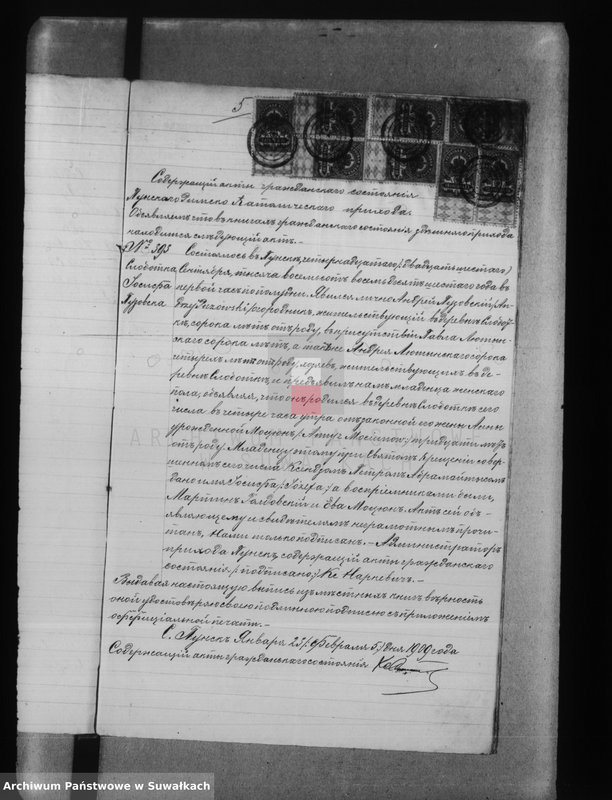 5
Содержащій акты гражданскаго состоянія
Пунскаго Римско Католическаго прихода.
Объявляетъ что въ книгахъ гражданскаго состоянія здѣшняго прихода
находится слѣдующій актъ. —
№ 393 Состоялось въ Пунскѣ, четырнадцатаго /:двадцать шестаго:/
Слободка Сентября, тысяча восемьсотъ восемьдесятъ шестаго года въ
Іосифа первой часъ по полудни. Явился лично Андрей Пузовскій /:An-
Пузовска drzej Puzowski:/ огородникъ, жительствующій въ деревнѣ Слобод-
кѣ, сорока лѣтъ отъ роду, въ присутствіи Павла
скаго сорока лѣтъ, а также Андрея сорока
четырехъ лѣтъ отъ роду, жительствующихъ въ де-
ревнѣ Слободкѣ, и предъявилъ намъ младенца женскаго
пола, объявляя, что онъ родился въ деревнѣ Слободкѣ сего
числа въ четыре часа утра отъ законной его жены Анны
урожденной Моцюнъ /:Anny Mociunow:/ тридцати лѣтъ
отъ роду. Младенцу этому при Святомъ Крещеніи совер-
шенномъ сего числа Ксендзомъ Петромъ
дано имя Іосифа /:Józefa:/ а воспріемниками были,
Мартинъ и Ева Моцюнъ. Актъ сей объ-
являющему и свидѣтелямъ неграмотнымъ прочи-
танъ, Нами только подписанъ. — Администраторъ
прихода Пунскъ, содержащій акты гражданскаго
состоянія /:подписано:/ Кс. Наркевичъ. —
Выдавая настоящую выпись изъ мѣстныхъ книгъ вѣрность
оной удостовѣряю своею подлинною подписью съ приложеніемъ
оффиціальной печати. —
С. Пунскъ Января 23 /:Февраля 5:/ дня 1909 года
Содержащій акты гражданскаго состоянія
Archiwum Państwowe w Suwałkach